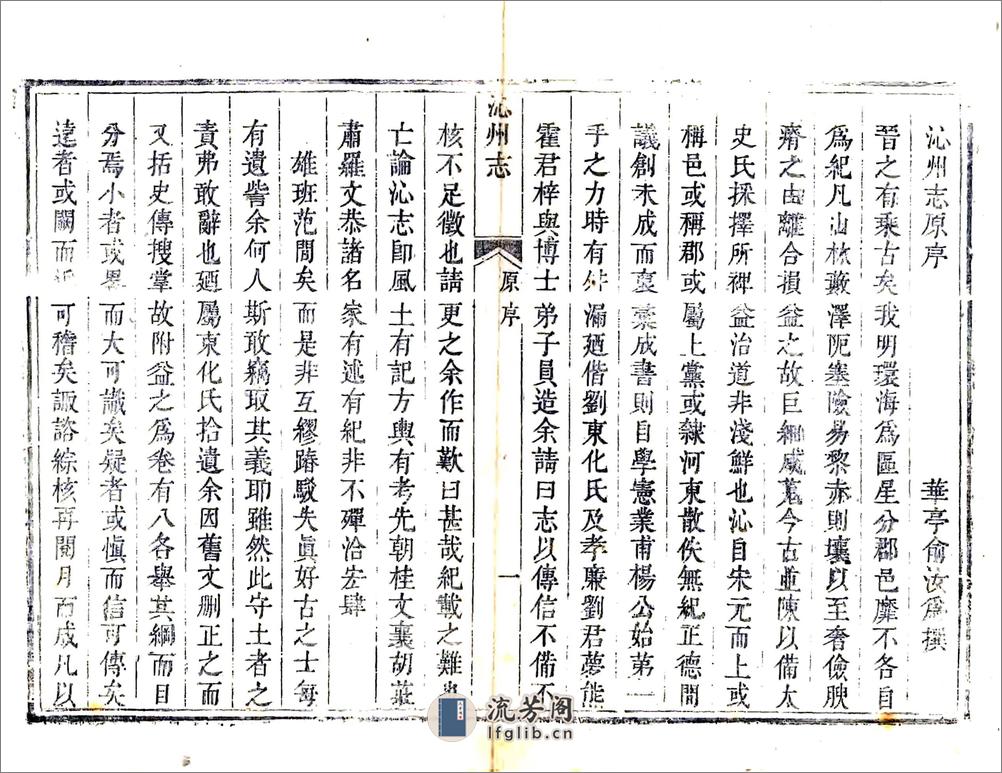 沁州志原序
華亭俞汝爲撰
晉之有乘古矣我明環海爲區星分郡邑靡不各自
爲紀凡山林藪澤阨塞險易黎赤則壤以至奢儉腴
瘠之由離合損益之故巨細咸蒐今古並陳以備太
史氏採擇所裨益治道非淺鮮也沁自宋元而上或
稱邑或稱郡或屬上黨或隸河東散佚無紀正德間
議創未成而裒彙成書則自學憲業甫楊公始第一
手之力時有舛漏廼偕劉東化氏及孝廉劉君夢能
霍君梓與博士弟子員造余請曰志以傳信不備不
沁州志
原序
一
核不足徵也請更之余作而歎曰甚哉紀載之難也
亡論沁志卽風土有記方輿有考先朝桂文襄胡莊
肅羅文恭諸名家有述有紀非不殫洽宏肆
雄班范間矣而是非互繆踳駁失眞好古之士每
有遺訾余何人斯敢竊取其義耶雖然此守土者之
責弗敢辭也廼屬東化氏拾遺余因舊文刪正之而
又括史傳搜掌故附益之爲卷有八各舉其綱而目
分焉小者或畧而大可識矣疑者或愼而信可傳矣
遠者或闕而近可稽矣諏諮綜核再閱月而成凡以
流芳阁
lfglib.cn